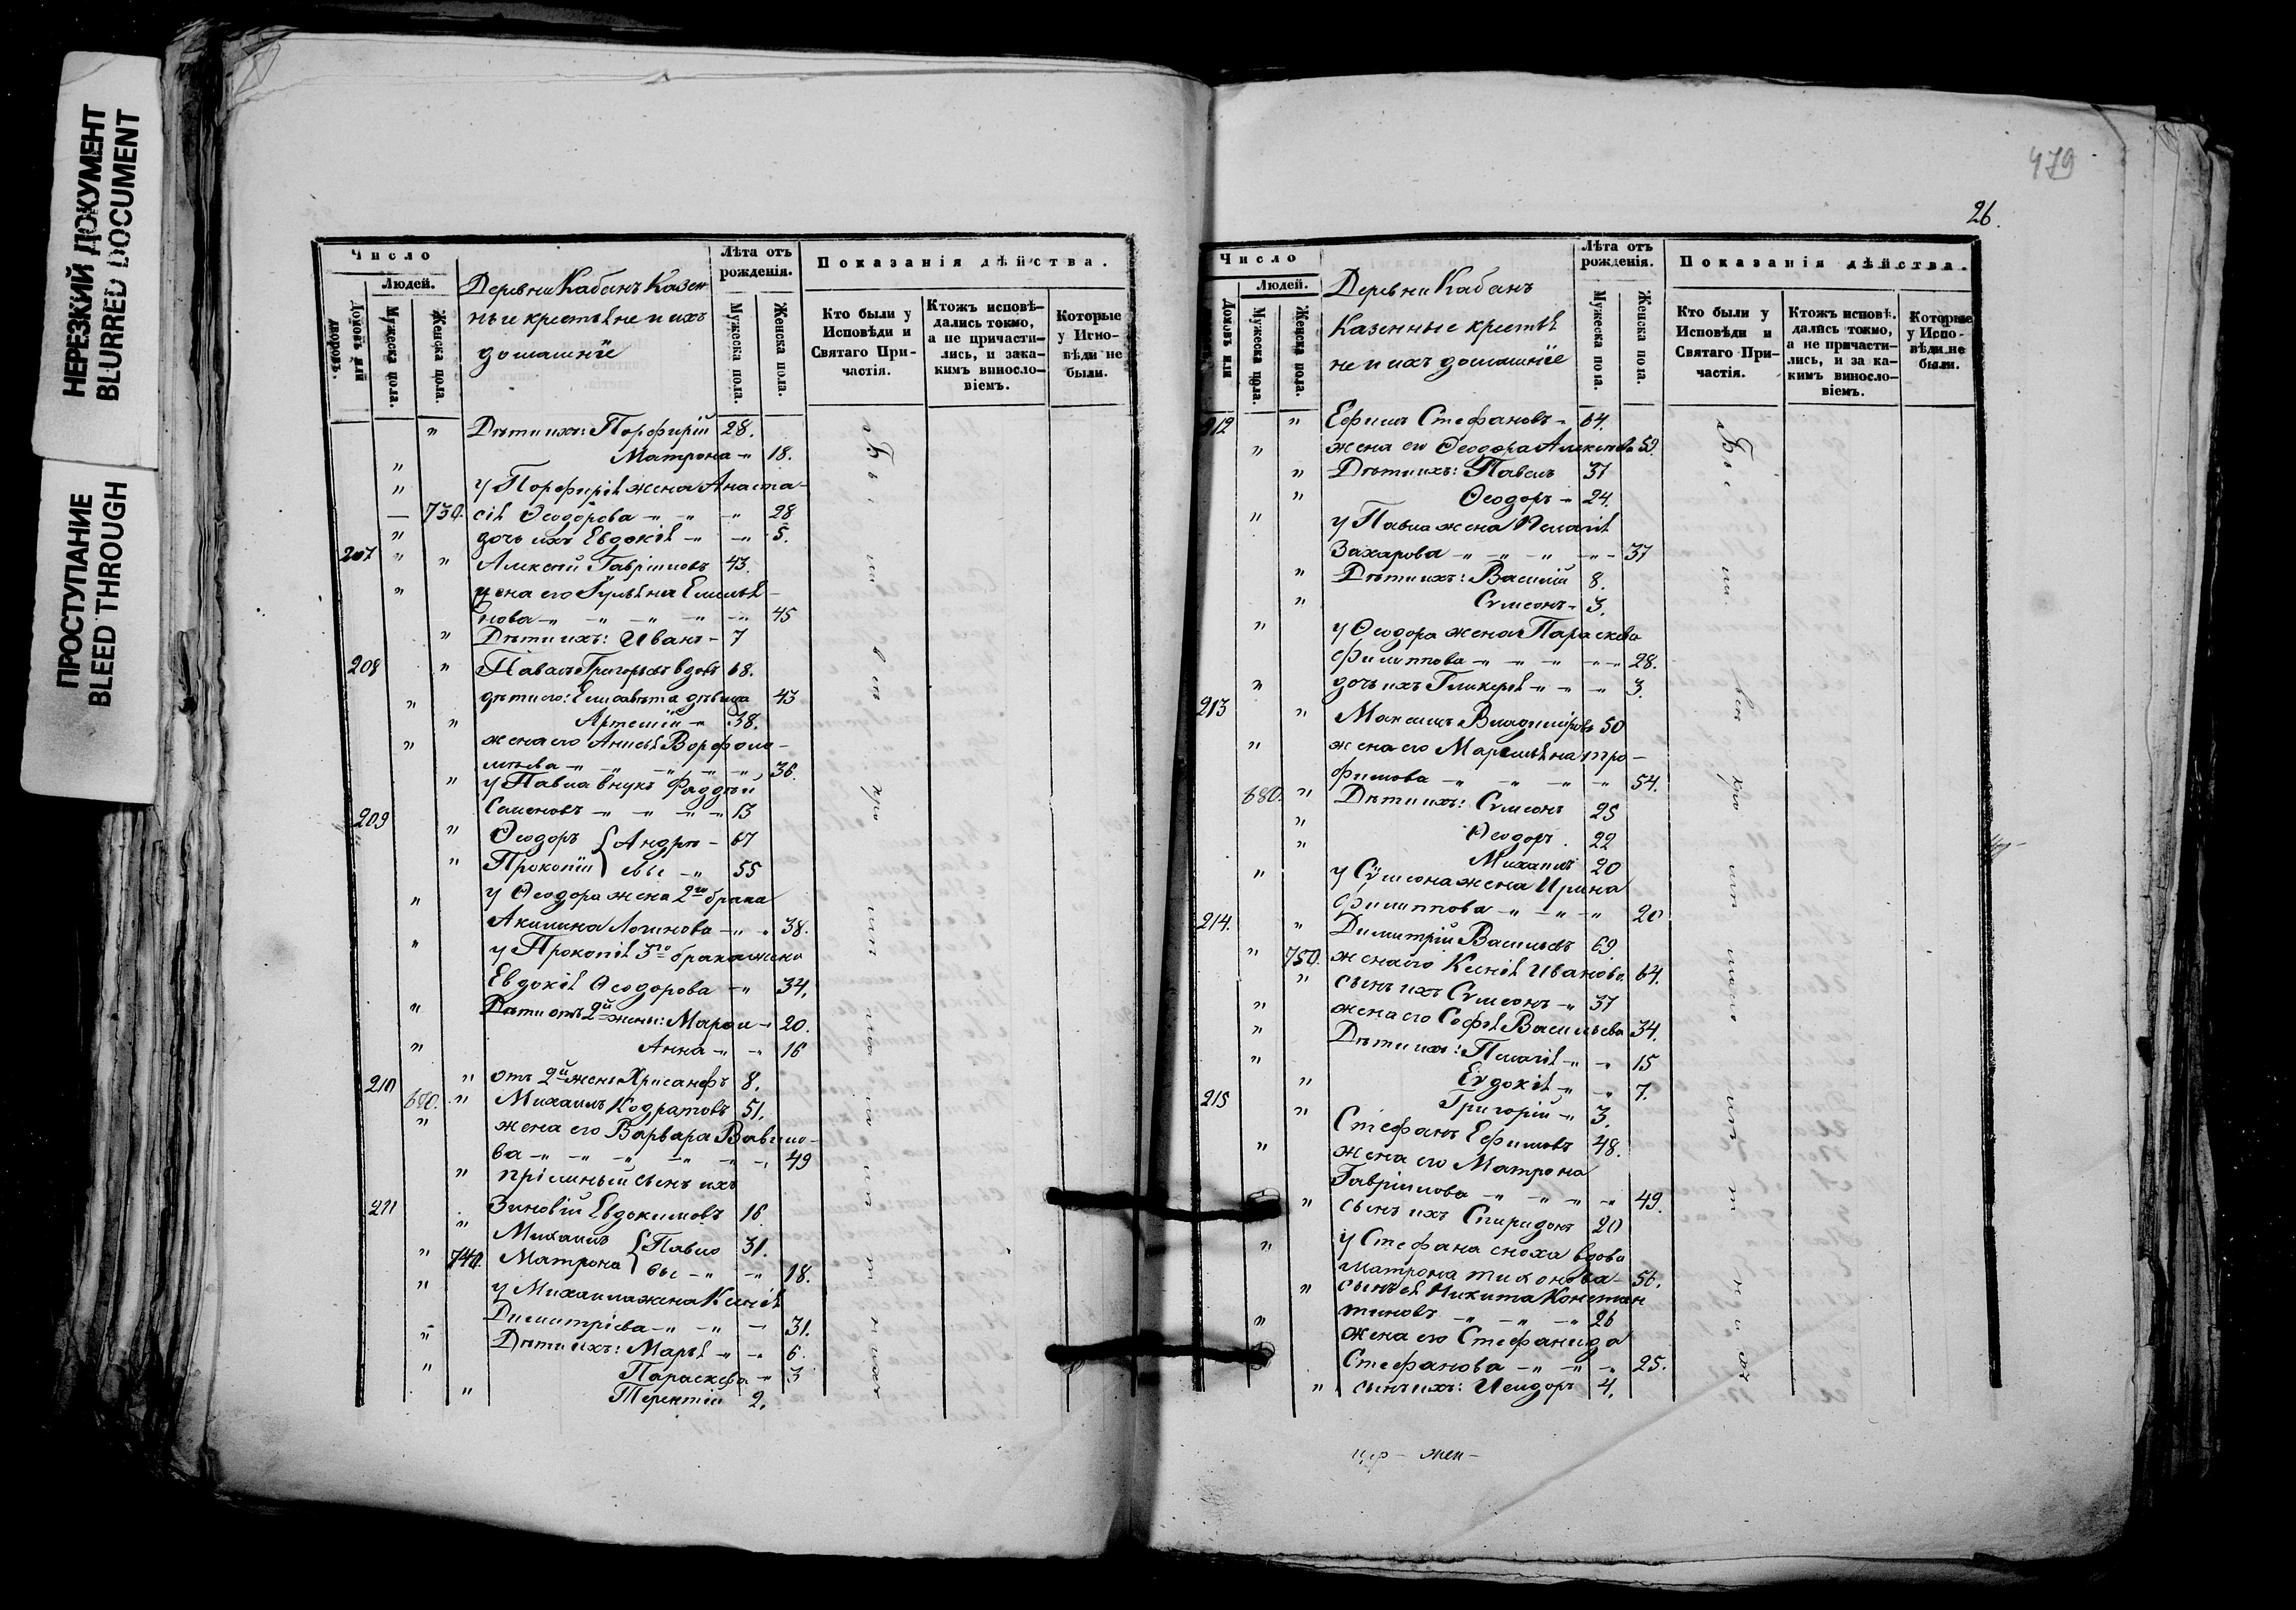 НЕРЕЗКИЙ ДОКУМЕНТ
BLURRED DOCUMENT
ПРОСТУПАНИЕ
BLEED THROUGH
Число
Людей.
Домовъ или дворовъ.
Мужеска пола.
Женска пола.
Деревни Кабанъ Казен
ные крестьяне и ихъ
домашніе
Лѣта отъ рожденія.
Мужеска пола.
Женска пола.
Показанія дѣйства.
Кто были у Исповѣди и Святаго Причастія.
Ктожъ исповѣдались токмо, а не причастились, и закакимъ винословіемъ.
Которые у Исповѣди не были.
" Дѣти ихъ: Порфирій 28.
" Матрона " 18.
" у Порфирія жена Анаста-
— 730. сія Ѳеодорова " " " 28
" дочь ихъ Евдокія " " 5.
207 " " Алексій Гавріиловъ 43.
" жена его Іуліяна Емилія-
нова " " " " " 45
" Дѣти ихъ: Иванъ - 7
208 " Павелъ Григорьевъ вдовъ 68.
" дѣти его: Елисавета дѣвица 43
" Артемій " 38.
" жена его Анисія Ворфоло-
меева " " " " " 36.
" у Павла внукъ Фаддѣй
Семеновъ " " " " 13
209 " Ѳеодоръ { Андре- 67
" Прокопій евы " 55
" у Ѳеодора жена 2го брака
Акилина Логинова " " 38.
" у Прокопія 3го брака жена
Евдокія Ѳеодорова " 34.
" Дѣти отъ 2й жены: Марѳа " 20.
" Анна " " 16
" отъ 2й жены Хрисанфъ 8.
210 670. " Михаилъ Кодратовъ 51.
" жена его Варвара Вавило-
ва " " " " " " 49
" пріемный сынъ ихъ
Зиновій Евдокимовъ 16
211 " Михаилъ { Павло 31.
" 740. Матрона вы " " 18.
" у Михаила жена Ксенія
Димитріева " " - 31.
" Дѣти ихъ: Марія " " 6.
" Параскева " 3
" Терентій 2.
479
26.
Число
Людей.
Домовъ или
Мужеска пола.
Женска пола.
Деревни Кабанъ
Казенные крестья
не и ихъ домашніе
Лѣта отъ рожденія.
Мужеска пола.
Женска пола.
Показанія дѣйства.
Кто были у Исповѣди и Святаго Причастія.
Ктожъ исповѣдались токмо, а не причастились, и за какимъ винословіемъ.
Которые у Исповѣди не были.
212 " Ефимъ Стефановъ - 64.
" жена его Ѳеодора Алексѣева 59.
" Дѣти ихъ: Павелъ 37
" Ѳеодоръ - 24.
" у Павла жена Пелагія
Захарова " " " " - 37
" Дѣти ихъ: Василій 8.
" Сѵмеонъ - 3.
" у Ѳеодора жена Параскева
Филиппова " " " " " 28.
" дочь ихъ Гликерія " " " 3.
213 " Максимъ Владиміровъ 50
" жена его Маремьяна Тро-
фимова " " " " 54.
680. " Дѣти ихъ: Сѵмеонъ 25
" Ѳеодоръ. 22
" Михаилъ 20
" у Сѵмеона жена Ирина
Филиппова " " " 20
214. " Димитрій Васильевъ 69.
" 750. жена его Ксенія Иванова 64.
" сынъ ихъ Сѵмеонъ " 37
" жена его Софія Васильева 34.
" Дѣти ихъ: Пелагія " " 15
" Евдокія " " 7.
" Григорій " 3.
215 " Стефанъ Ефимовъ 48.
" жена его Матрона
Гавріилова " " " " 49.
" сынъ ихъ Спиридонъ 20
" у Стефана сноха вдова
Матрона Тихонова - 56.
" сынъ ея Никита Констан
тиновъ " " " 26
" жена его Стефанида
Стефанова " " " 25.
" сынъ ихъ: Исидоръ 4.